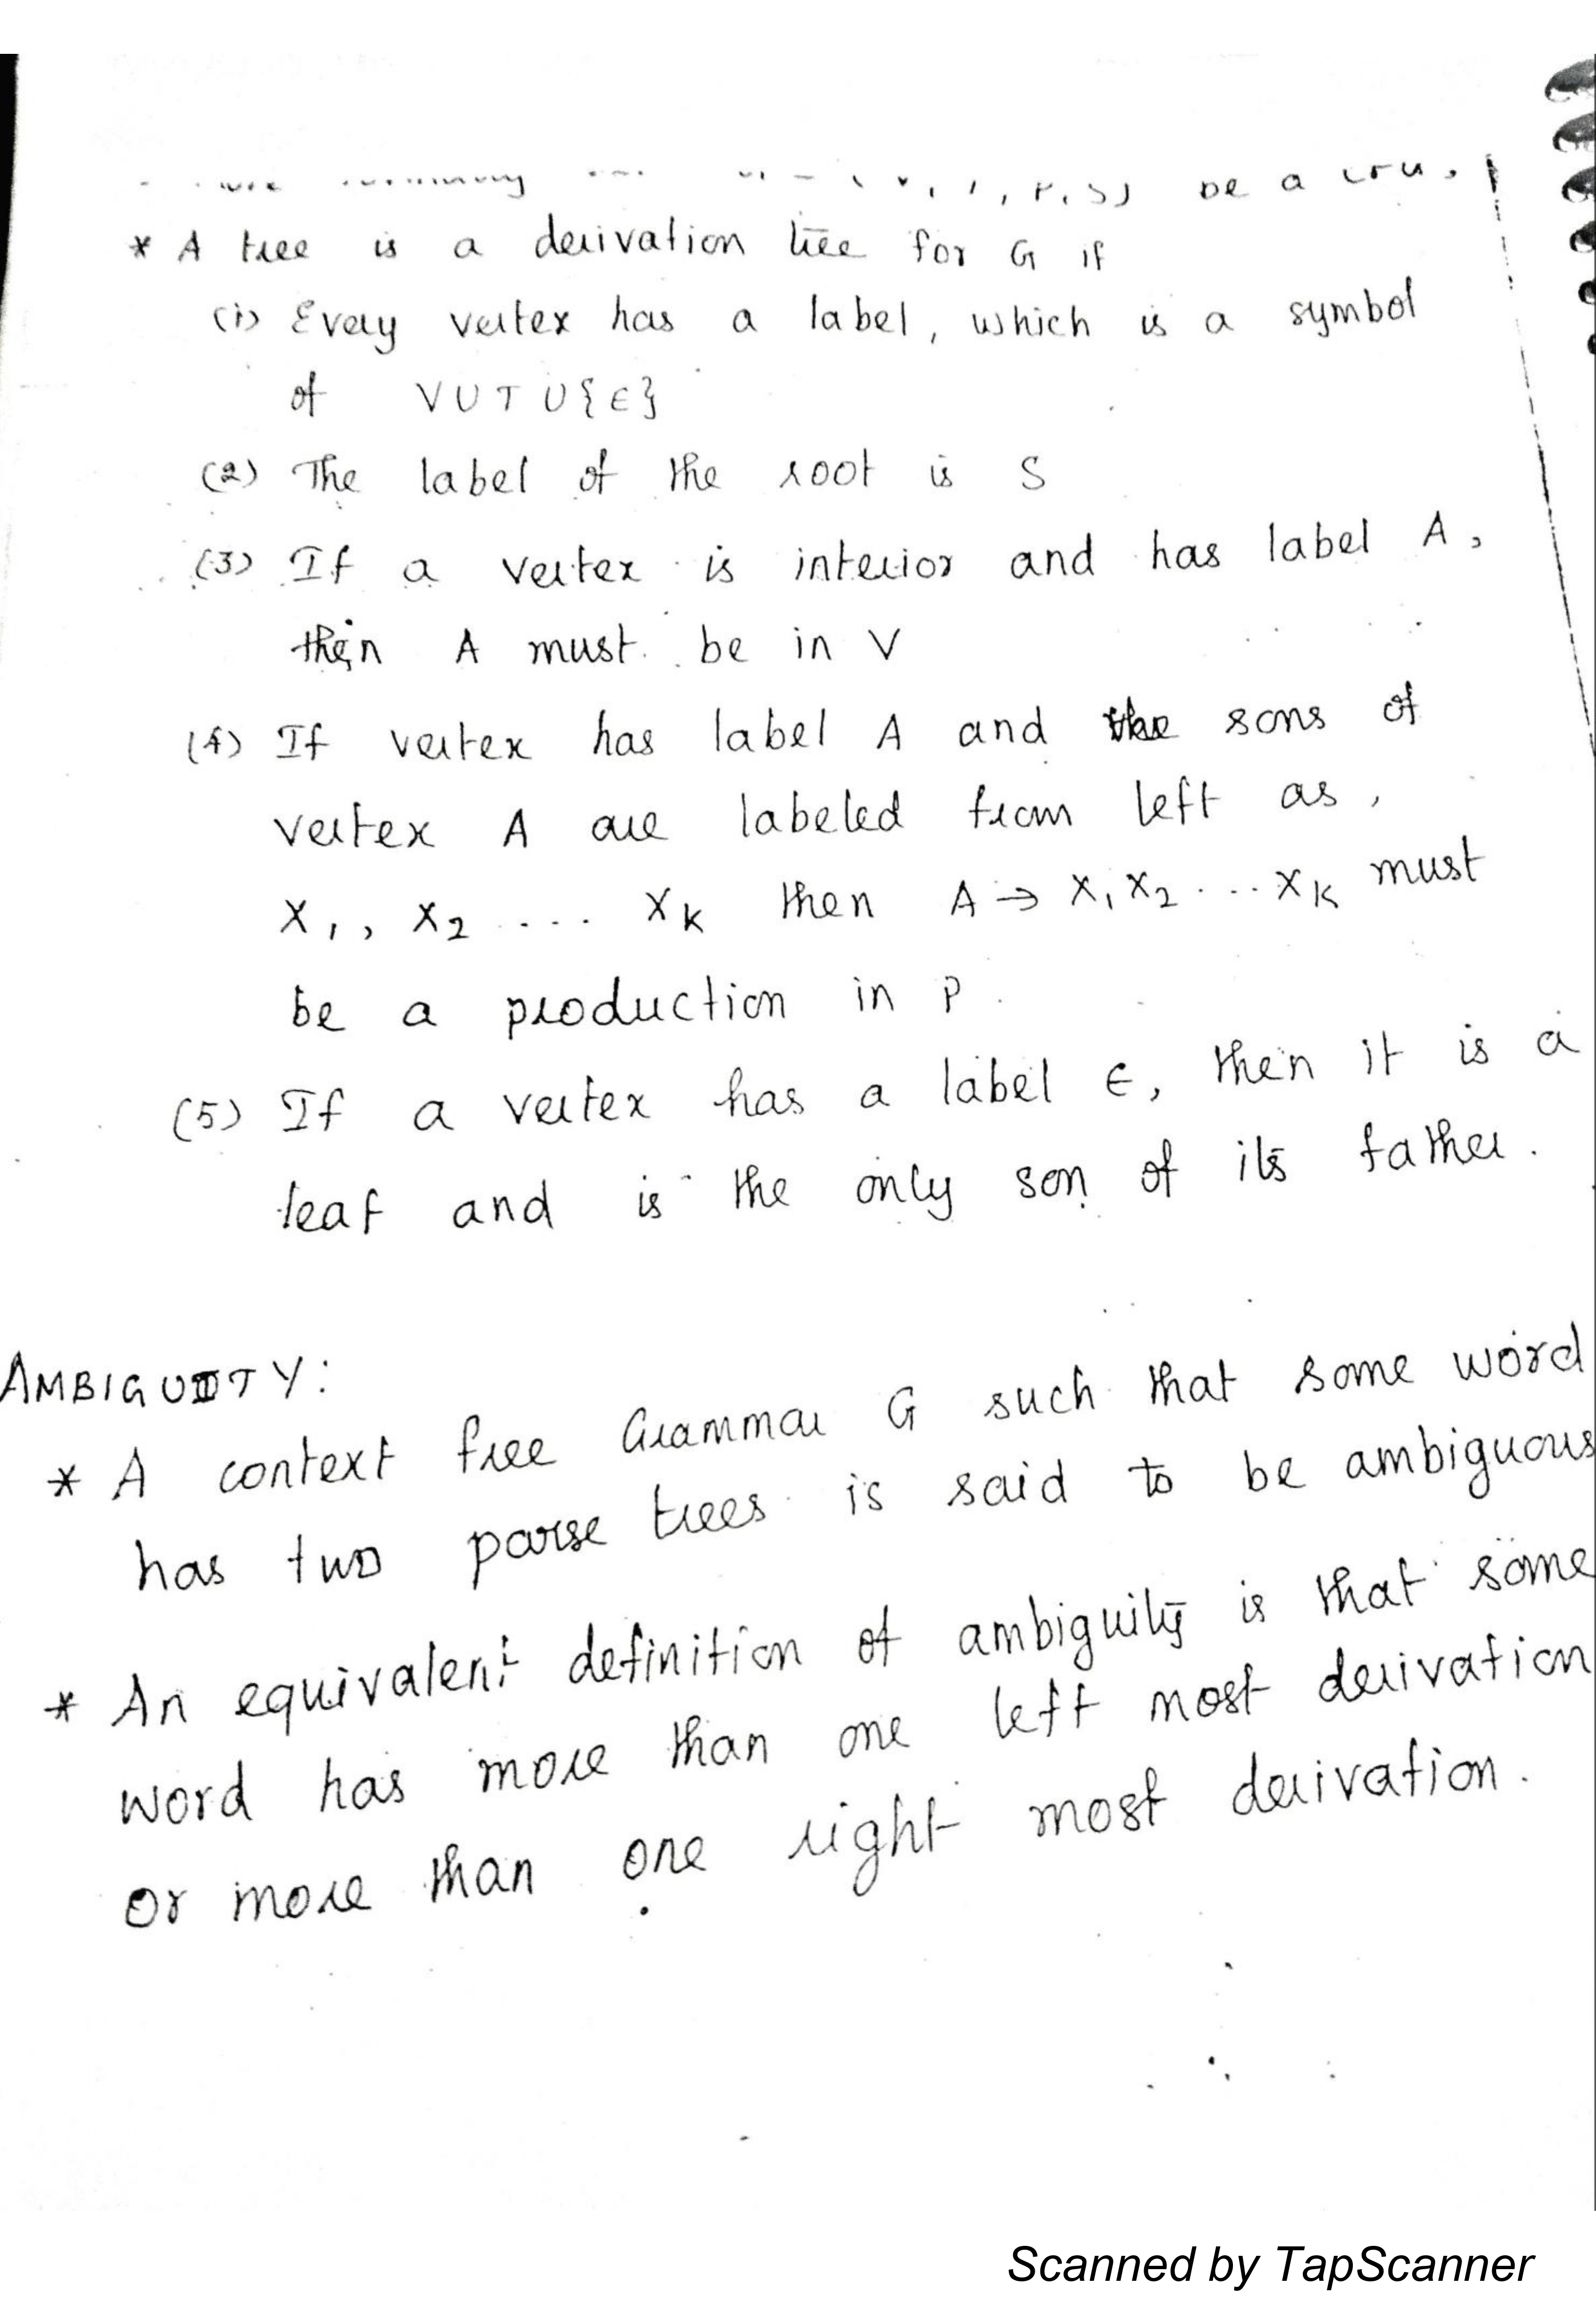 be a
* A tree is a derivation tree for G if
(1) Every vertex has a label, which is a symbol
of V U T U {ε}
(2) The label of the root is S
(3) If a vertex is interior and has label A,
then A must be in V
(4) If vertex has label A and the sons of
vertex A are labeled from left as,
X1, X2 .... XK then A → X1X2 .... XK must
be a production in P.
(5) If a vertex has a label ε, then it is a
leaf and is the only son of its father.
AMBIGUITY:
* A context free Grammar G such that some word
has two parse trees is said to be ambiguous
* An equivalent definition of ambiguity is that some
word has more than one left most derivation
or more than one right most derivation.
Scanned by TapScanner